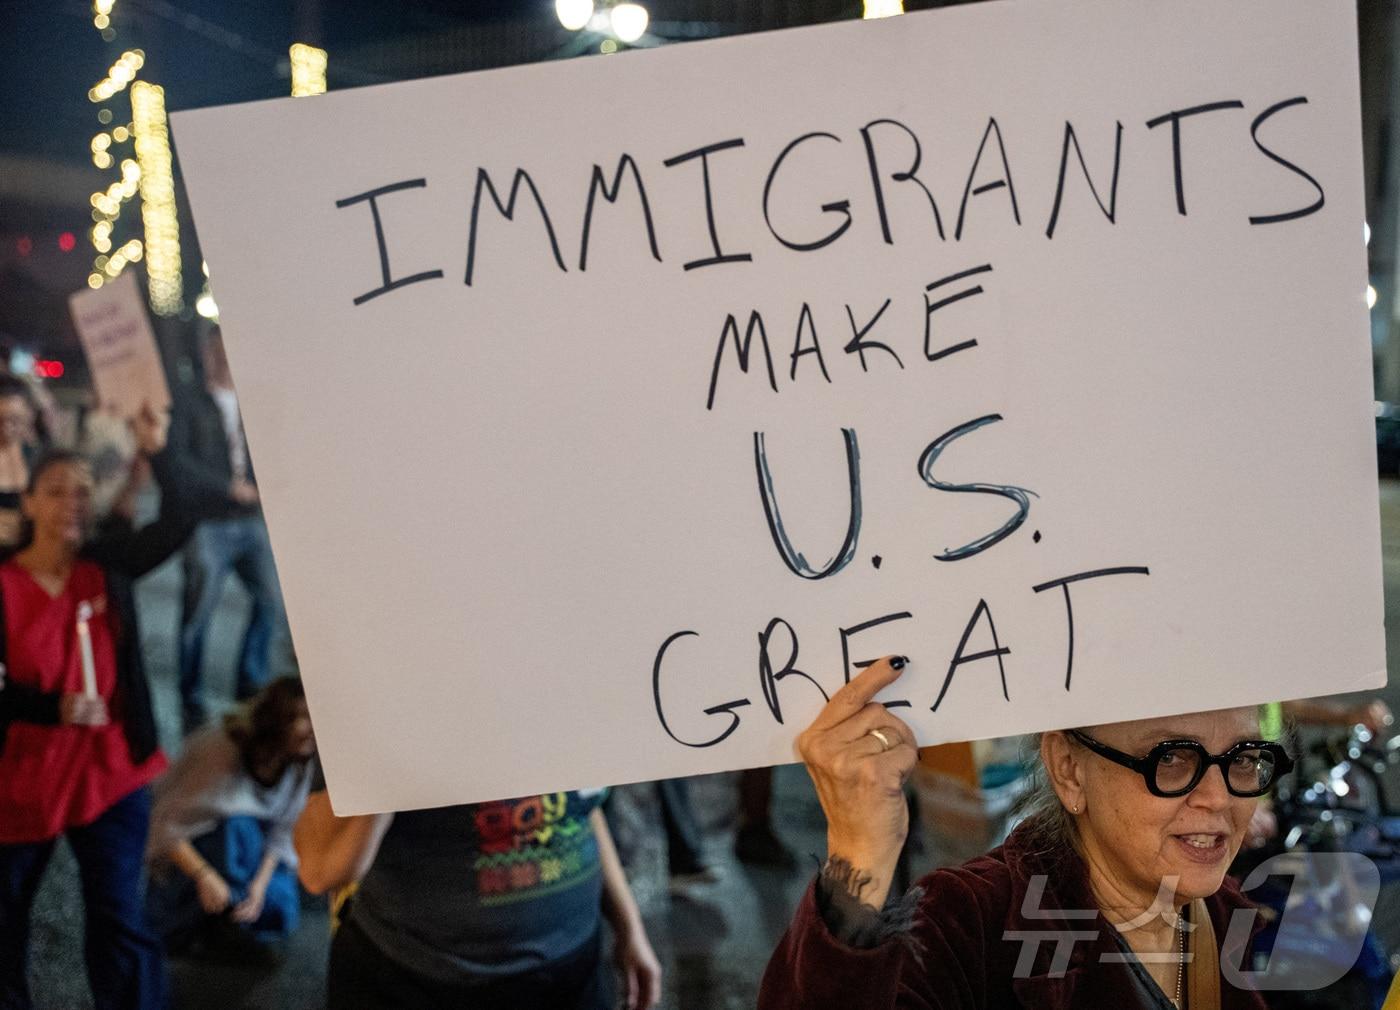 IMMIGRANTS
MAKE
U.S.
GREAT
gay
뉴스1